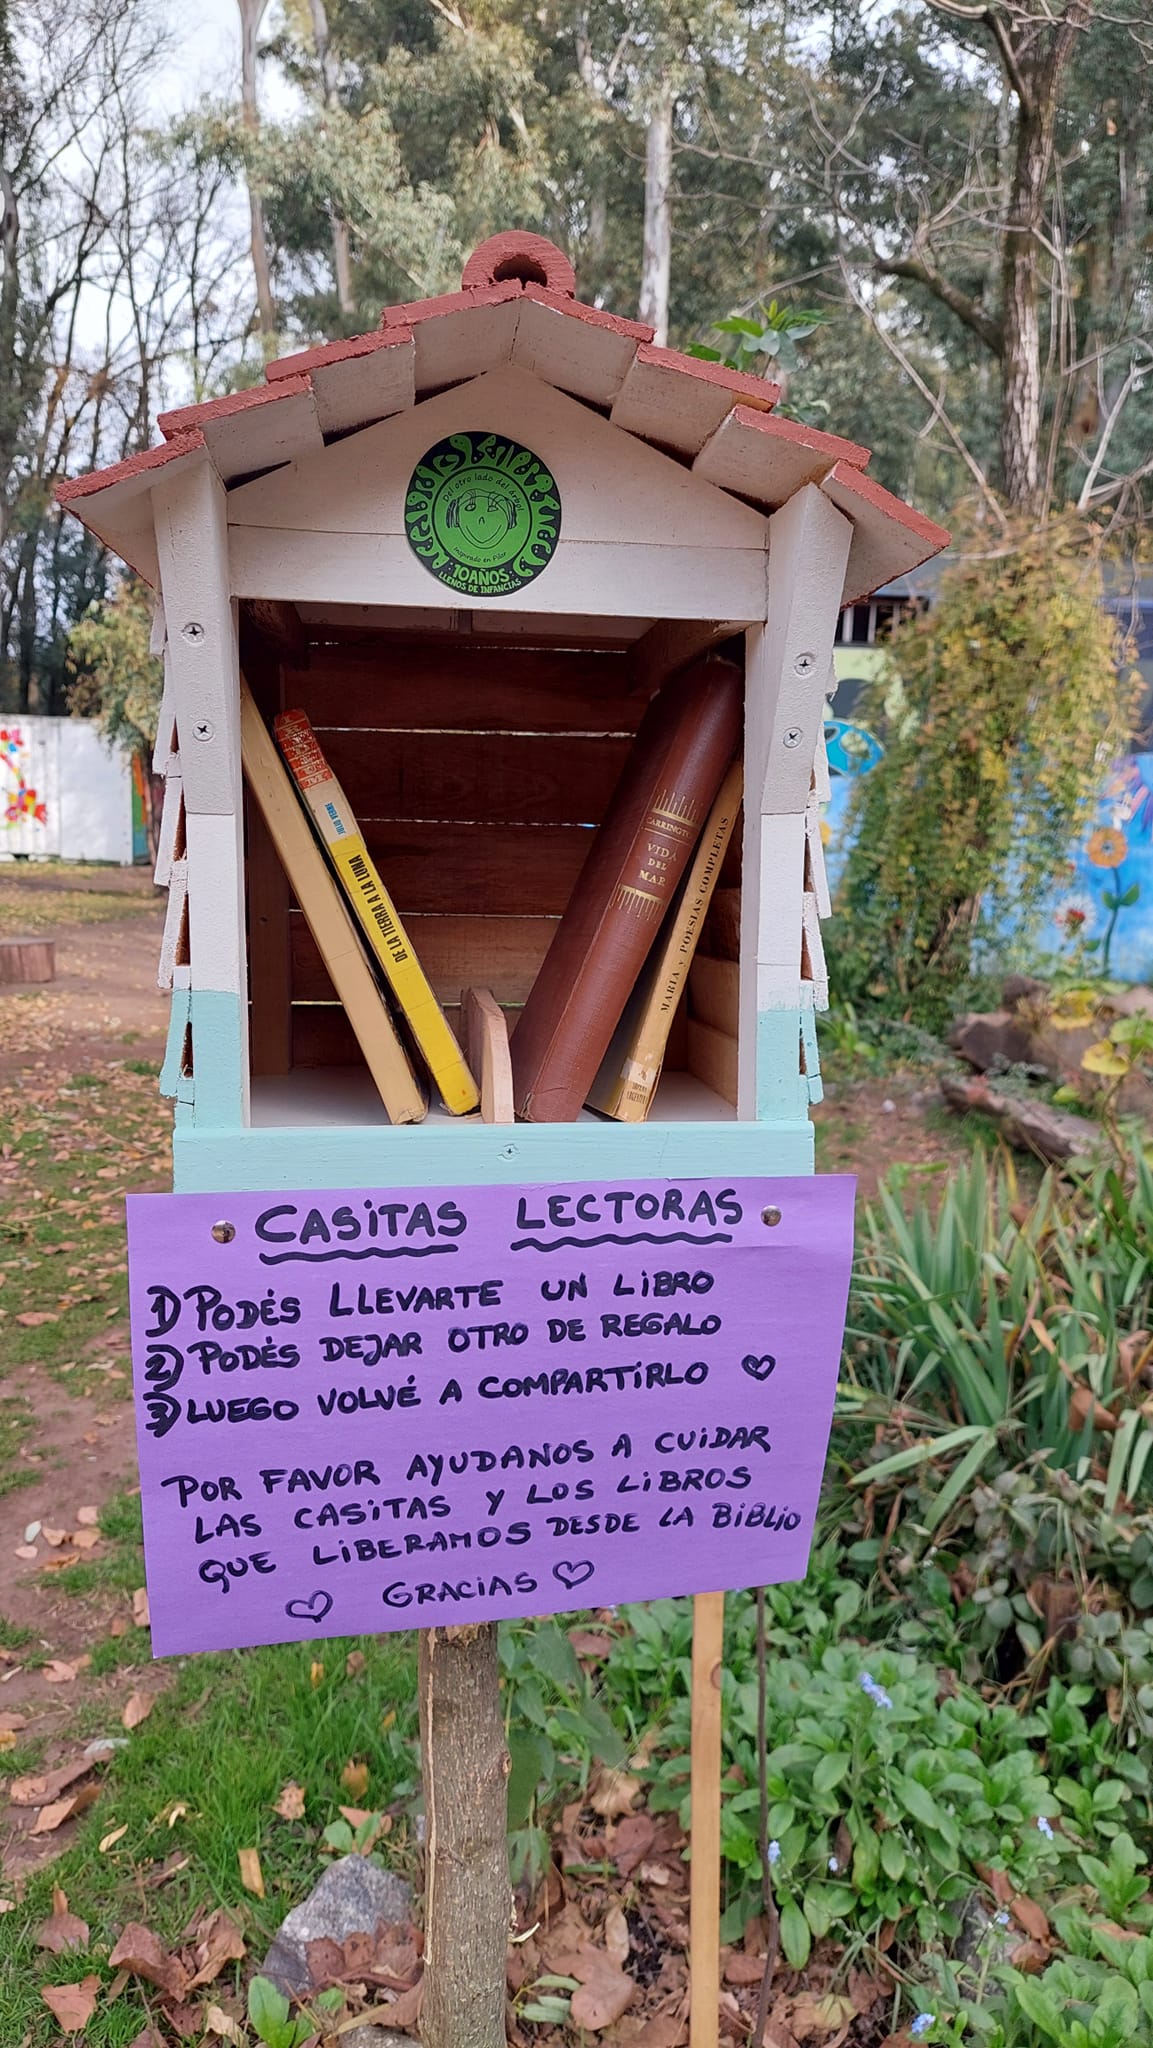 Del otro lado del árbol
Inspirado en Pilar
10 AÑOS
LLENOS DE INFANCIAS
JULIO VERNE
DE LA TIERRA A LA LUNA
CARRINGTON
VIDA
DEL
MAR
MARIA Y POESIAS COMPLETAS
CASITAS LECTORAS
1) PODÉS LLEVARTE UN LIBRO
2) PODÉS DEJAR OTRO DE REGALO
3) LUEGO VOLVÉ A COMPARTIRLO
POR FAVOR AYUDANOS A CUIDAR
LAS CASITAS Y LOS LIBROS
QUE LIBERAMOS DESDE LA BIBLIO
GRACIAS